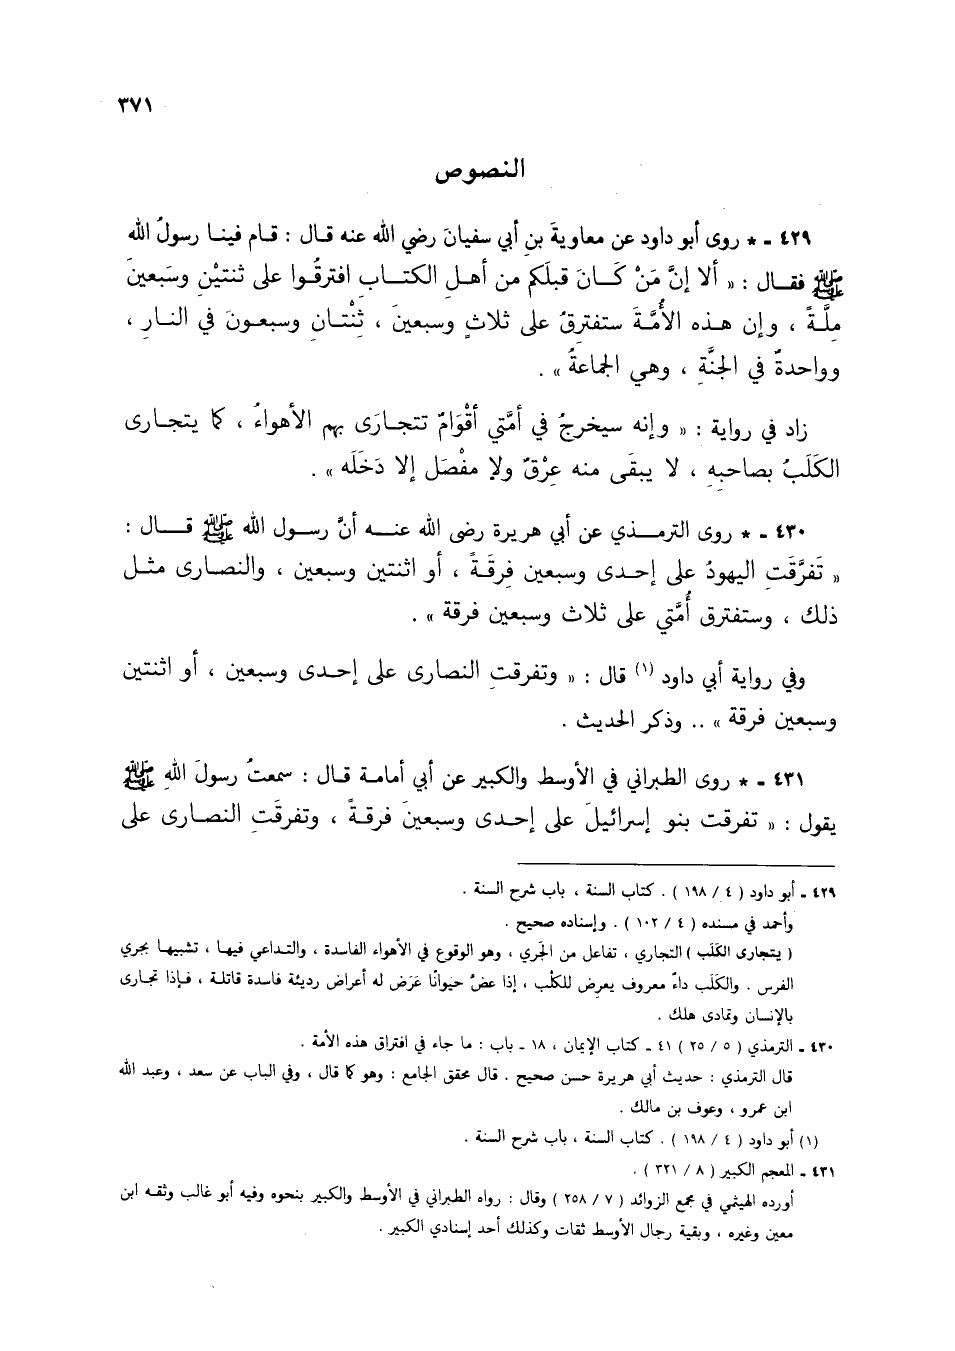 ٣٧١
النصوص
٤٢٩ - * روى أبو داود عن معاويةَ بنِ أبي سفيانَ رضي الله عنه قال : قام فينا رسولُ الله
ﷺ فقال : « ألا إنَّ مَنْ كَانَ قبلَكم من أهلِ الكتابِ افترقُوا على ثنتيْنِ وسَبعينَ
مِلَّةً ، وإن هذه الأُمَّةَ ستفترقُ على ثلاثٍ وسبعينَ ، ثِنْتانِ وسبعونَ في النارِ ،
وواحدةٌ في الجنَّةِ ، وهي الجماعةُ » .
زاد في رواية : « وإنه سيخرجُ في أمَّتي أقْوَامٌ تتجارَى بهم الأهواءُ ، كما يتجارى
الكَلَبُ بصاحبِهِ ، لا يبقَى منه عِرْقٌ ولا مفْصَل إلا دَخَلَه » .
٤٣٠ - * روى الترمذي عن أبي هريرة رضى الله عنه أنَّ رسول الله ﷺ قال :
« تَفرَّقَتِ اليهودُ على إحدى وسبعين فِرقَةً ، أو اثنتين وسبعين ، والنصارى مثل
ذلك ، وستفترق أُمَّتي على ثلاث وسبعين فرقة » .
وفي رواية أبي داود (١) قال : « وتفرقتِ النصارى على إحدى وسبعين ، أو اثنتين
وسبعين فرقة » .. وذكر الحديث .
٤٣١ - * روى الطبراني في الأوسط والكبير عن أبي أمامة قال : سمعتُ رسولَ اللهِ ﷺ
يقول : « تفرقت بنو إسرائيلَ على إحدى وسبعينَ فرقةً ، وتفرقَتِ النصارى على
٤٢٩ - أبو داود ( ٤ / ١٩٨ ) . كتاب السنة ، باب شرح السنة .
وأحمد في مسنده ( ٤ / ١٠٢ ) . وإسناده صحيح .
( يتجارى الكَلَب ) التجاري ، تفاعل من الجري ، وهو الوقوع في الأهواء الفاسدة ، والتداعي فيها ، تشبيها بجري
الفرس . والكَلَب داءٌ معروف يعرِض للكلْب ، إذا عضَّ حيوانًا عَرَض له أعراض رديئة فاسدة قاتلة ، فإذا تجارى
بالإنسان وتمادى هلك .
٤٣٠ - الترمذي ( ٥ / ٢٥ ) ٤١ - كتاب الإيمان ، ١٨ - باب : ما جاء في افتراق هذه الأمة .
قال الترمذي : حديث أبي هريرة حسن صحيح . قال محقق الجامع : وهو كما قال ، وفي الباب عن سعد ، وعبد الله
ابن عمرو ، وعوف بن مالك .
(١) أبو داود ( ٤ / ١٩٨ ) . كتاب السنة ، باب شرح السنة .
٤٣١ - المعجم الكبير ( ٨ / ٣٢١ ) .
أورده الهيثمي في مجمع الزوائد ( ٧ / ٢٥٨ ) وقال : رواه الطبراني في الأوسط والكبير بنحوه وفيه أبو غالب وثقه ابن
معين وغيره ، وبقية رجال الأوسط ثقات وكذلك أحد إسنادي الكبير .